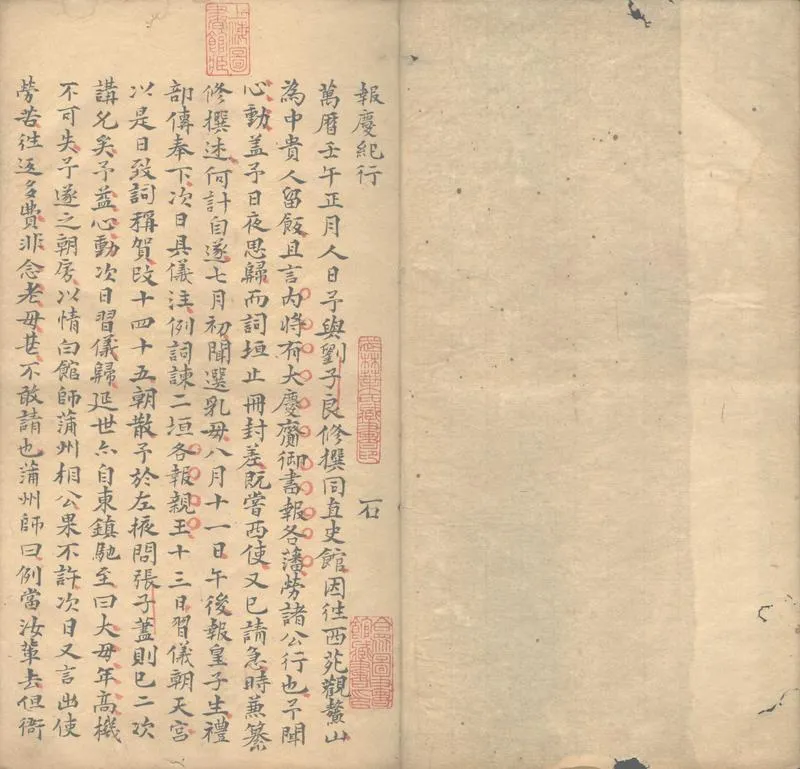 報慶紀行
石
萬曆壬午正月人日予與劉子良修撰同直史館因往西苑觀鰲山
為中貴人留飯且言内將有大慶齎御書報各藩勞諸公行也予聞
心動蓋予日夜思歸而詞垣止冊封差既嘗西使又已請急時兼纂
修撰述何計自遂七月初聞選乳母八月十一日午後報皇子生禮
部傳奉下次日具儀注例詞諫二垣各報親王十三日習儀朝天宮
以是日致詞稱賀改十四十五朝散予於左掖問張子蓋則已二次
講允矣予益心動次日習儀歸延世亦自東鎮馳至曰大母年高機
不可失予遂之朝房以情白館師蒲州相公果不許次日又言出使
勞苦往返多費非念老母甚不敢請也蒲州師曰例當汝輩去但衙
上海圖書館藏
武林葉氏藏書印
合衆圖書館藏書印